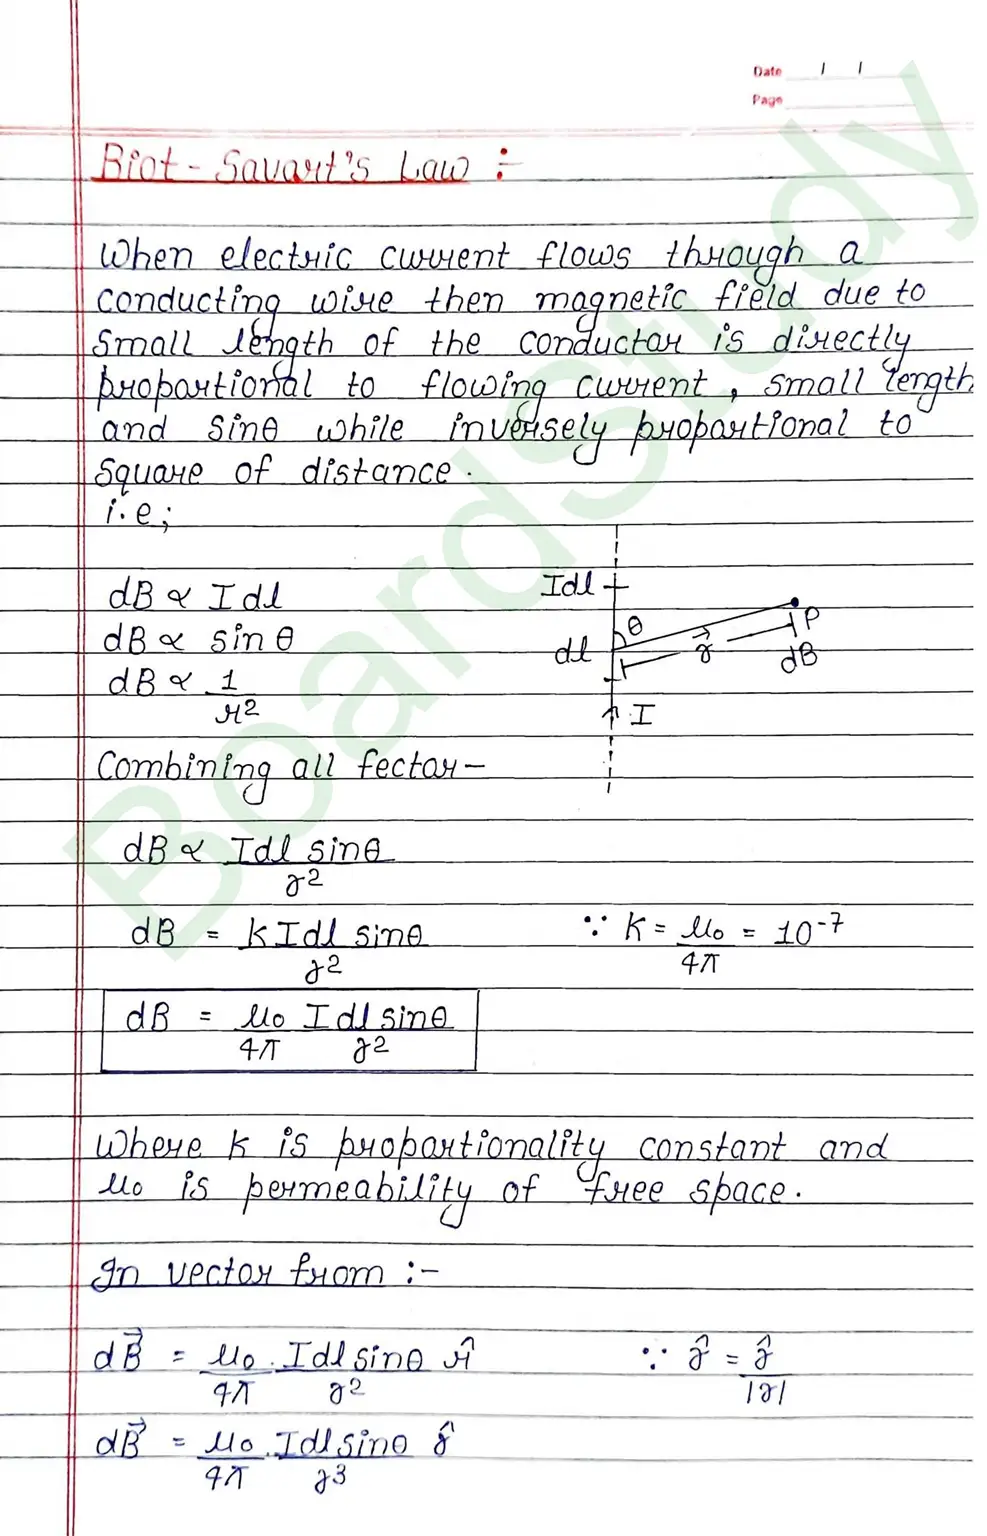 Date / /
Page
Biot - Savart's Law :-
When electric current flows through a
conducting wire then magnetic field due to
small length of the conductor is directly
proportional to flowing current, small length
and sinθ while inversely proportional to
square of distance.
i.e;
dB ∝ I dl
dB ∝ sin θ
dB ∝ 1/r²
Idl
θ
dl
r⃗
P
dB
I
Combining all fector-
dB ∝ Idl sinθ/r²
dB = kIdl sinθ/r² ∵ K = μ₀/4π = 10⁻⁷
dB = μ₀/4π Idl sinθ/r²
Where k is proportionality constant and
μ₀ is permeability of free space.
In vector from :-
dB⃗ = μ₀/4π . Idl sinθ/r² r̂ ∵ r̂ = r̂/|r|
dB⃗ = μ₀/4π . Idl sinθ/r³ r̂
BoardStudy